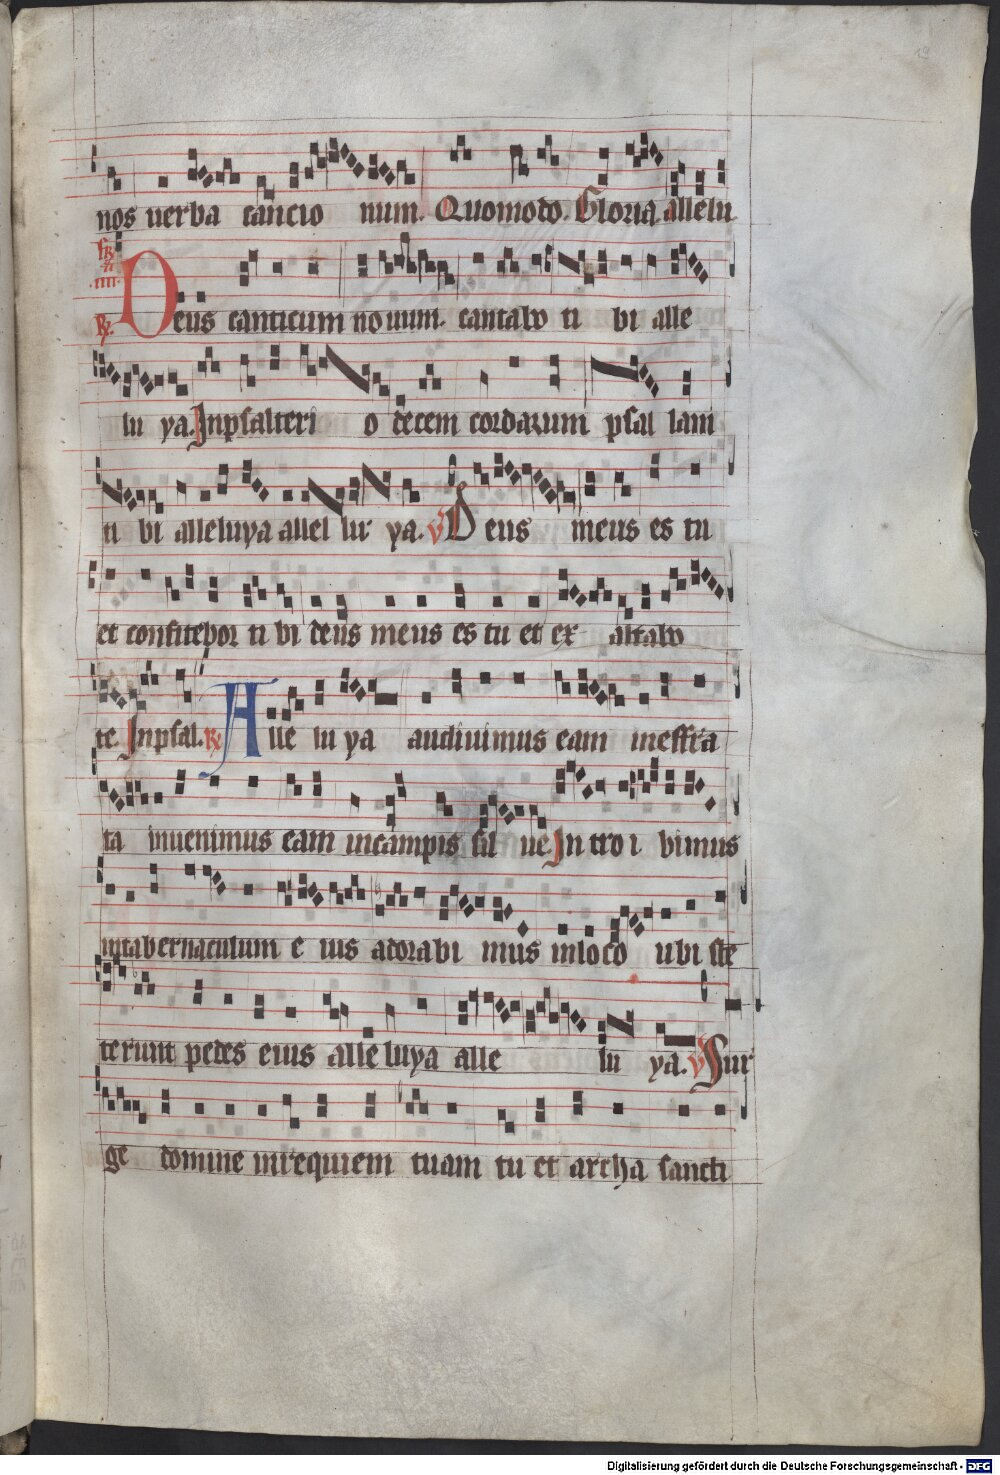 19
nos uerba cancio num. Quomodo. Gloria. allelu
fr
iiii.
R. Deus canticum nouum. cantabo ti bi alle
lu ya. Inpsalteri o decem cordarum psal lam
ti bi alleluya allel lu ya. V Deus meus es tu
et confitebor ti bi deus meus es tu et ex altabo
te. Inpsal. R Alle lu ya audiuimus eam ineffra
ta inuenimus eam incampis sil ue. In tro i bimus
intabernaculum e ius adorabi mus inloco ubi ste
terunt pedes eius alle luya alle lu ya. V Sur
ge domine inrequiem tuam tu et archa sancti
Digitalisierung gefördert durch die Deutsche Forschungsgemeinschaft - DFG